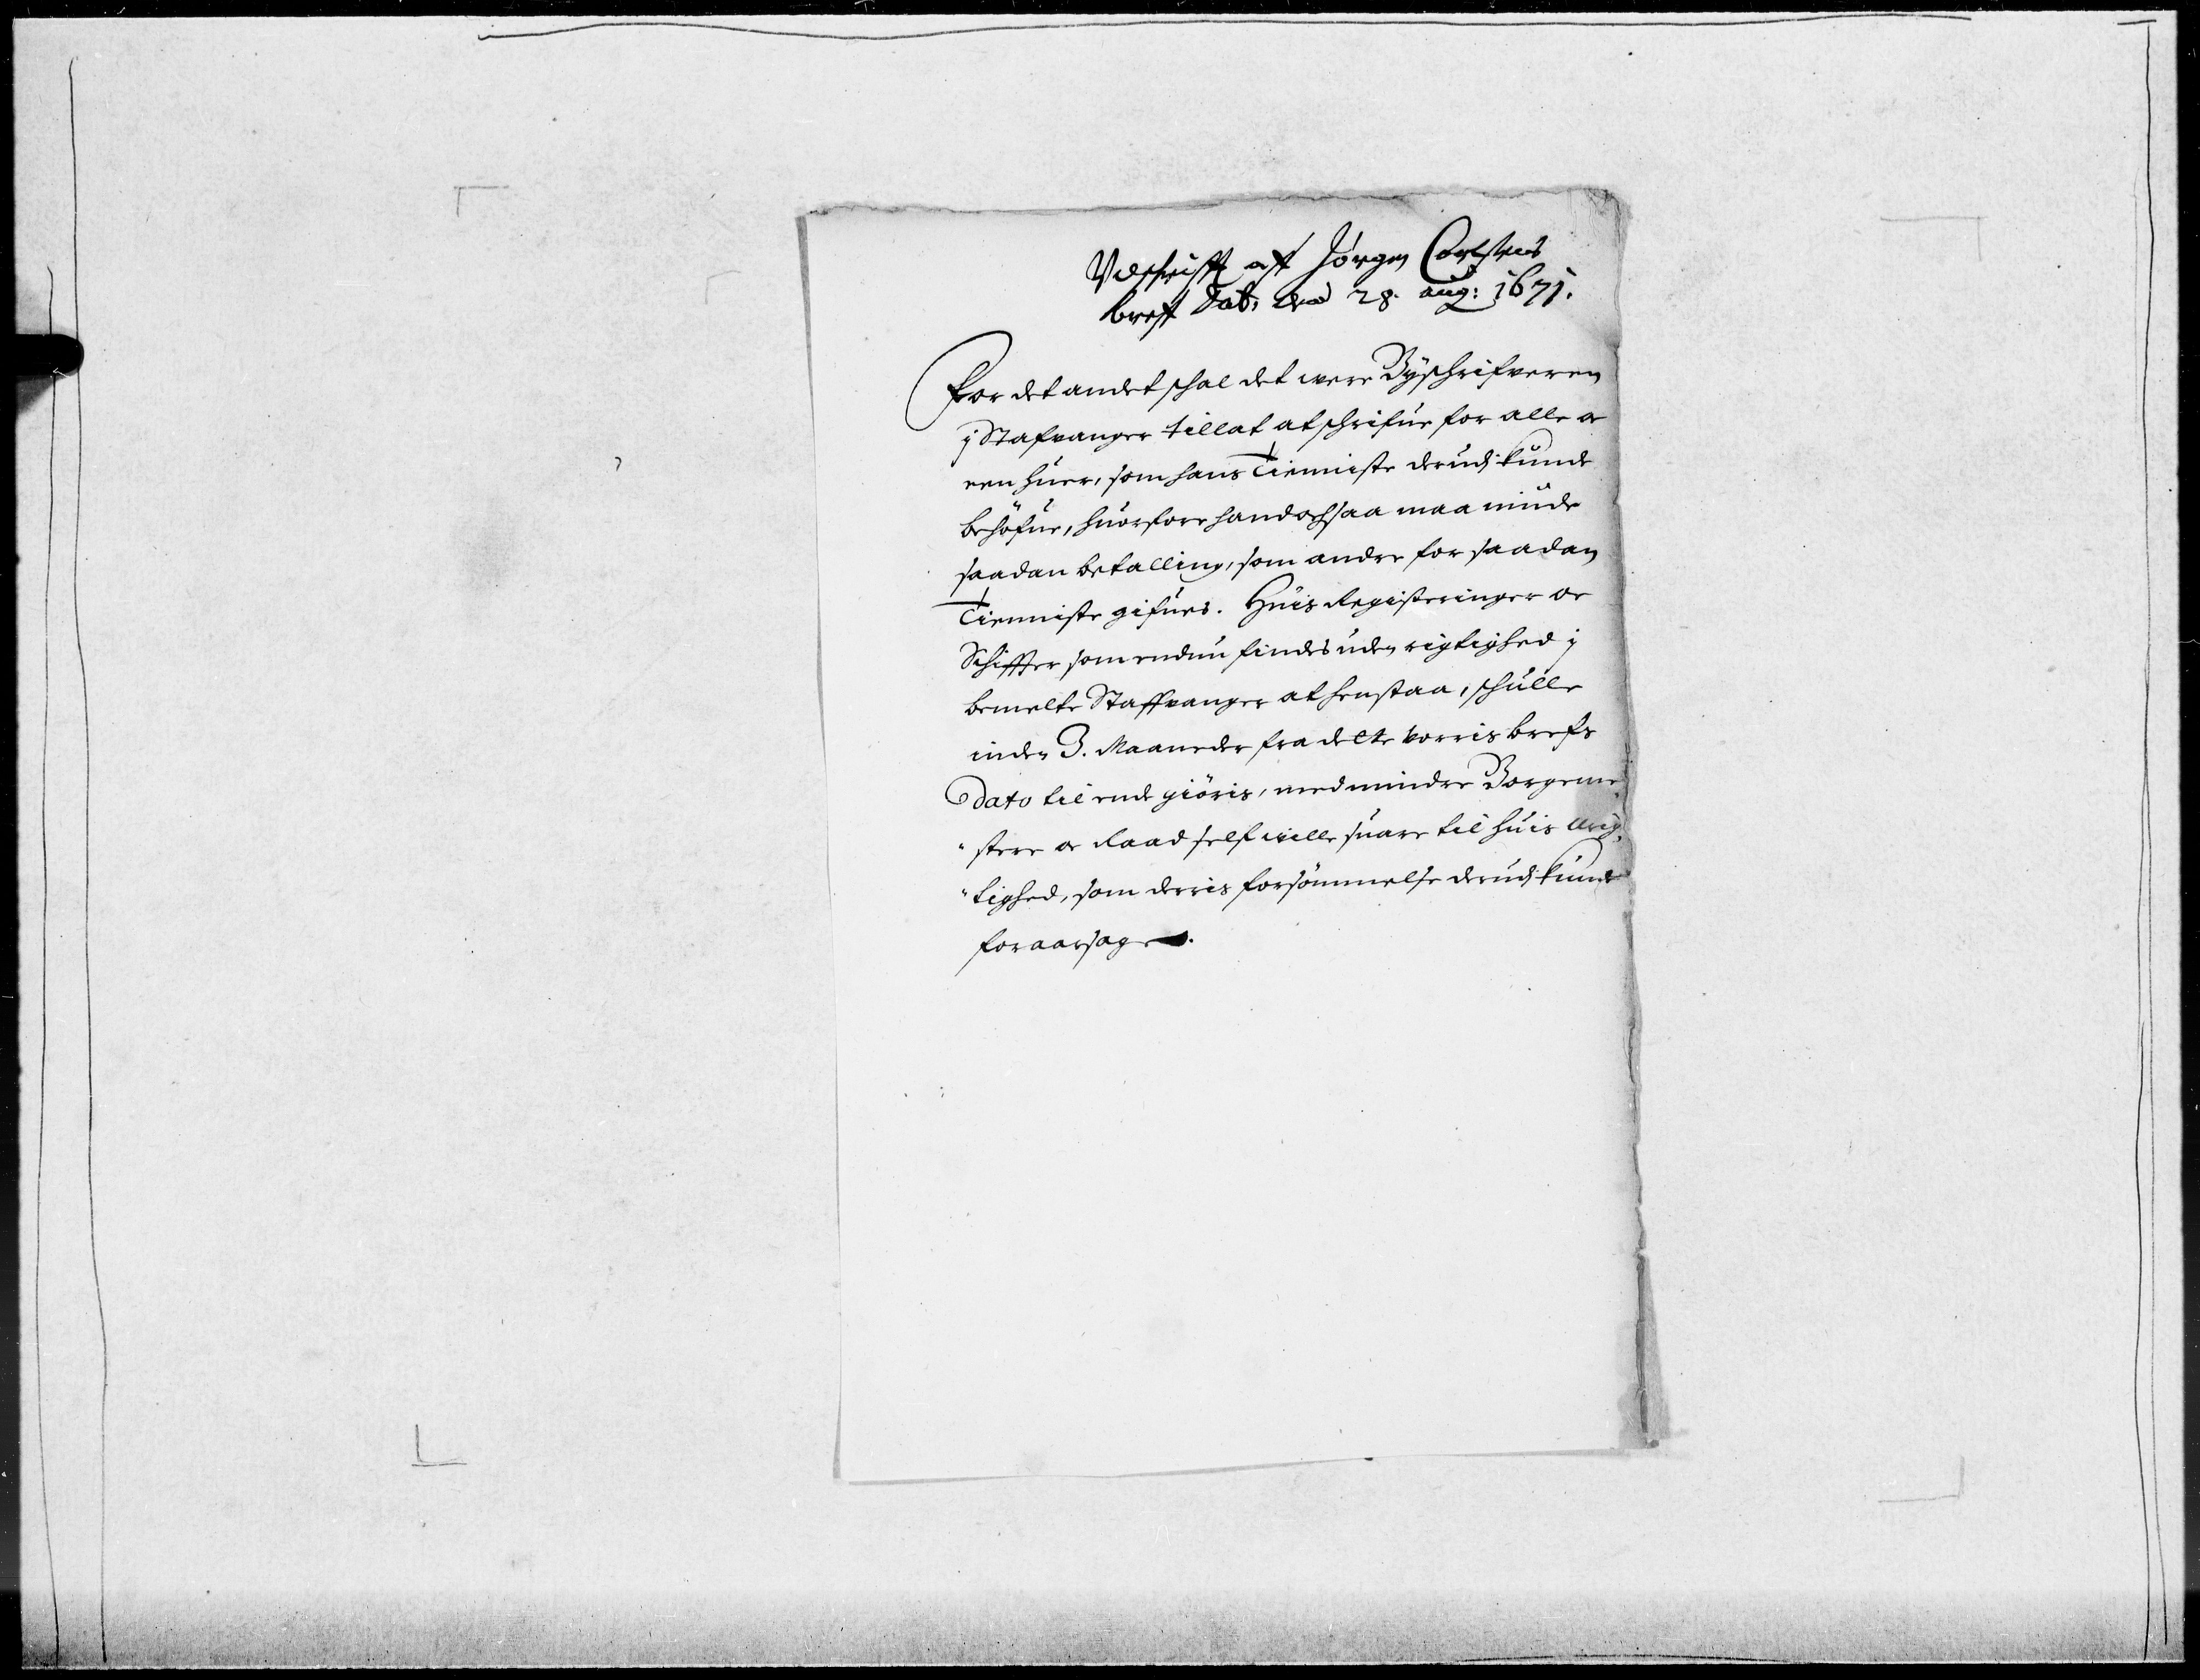 Vdschrifft aff Jørgen Carstens
breff Dat: den 28. aug: 1671.
For det andet schal det were Byschrifveren
j Stafvanger tillat at schrifue for alle oc
een huer, som hans Tienniste derudj kunde
behöfue, huorfore hand ochsaa maa niude
saadan betalling, som andre for saadan
Tienniste gifues. Huis Registeringer oc
Schiffter som endnu findes uden rigtighed j
bemelte Staffvanger at henstaa, schulle
inden 3. Maaneder fra dette vorris brefs
Dato til ende giöris, med mindre Borgeme,,
,,stere oc Raad self wille suare til huis Urig,,
,,tighed, som derris forsömmelse derudj kunde
foraarsage.